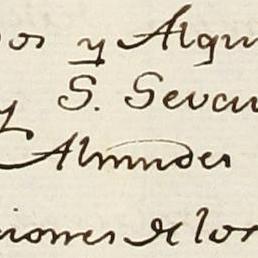 os y Alqui
y S. Sevau
Almudes
iones de los